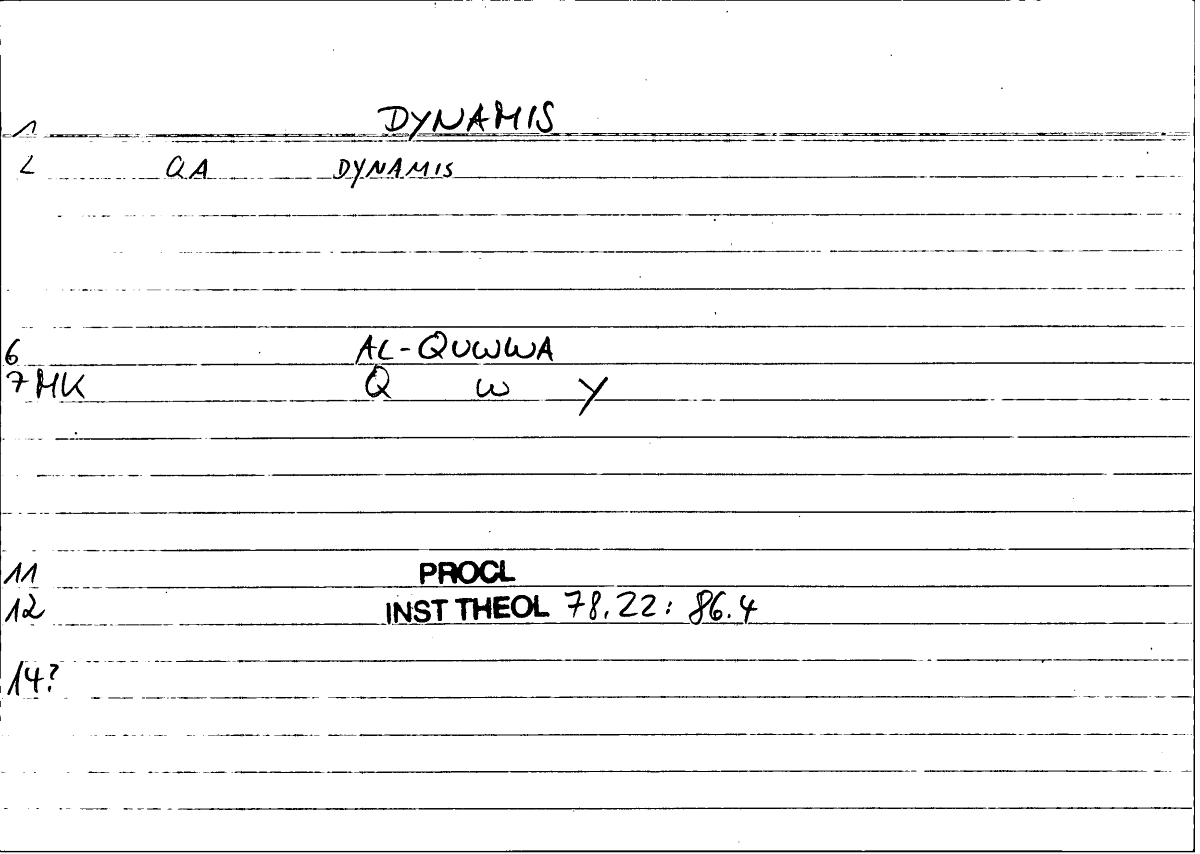 1 DYNAMIS
2 QA DYNAMIS
6 AL-QUWWA
7 MK Q W Y
11 PROCL
12 INST THEOL 78.22: 86.4
14?